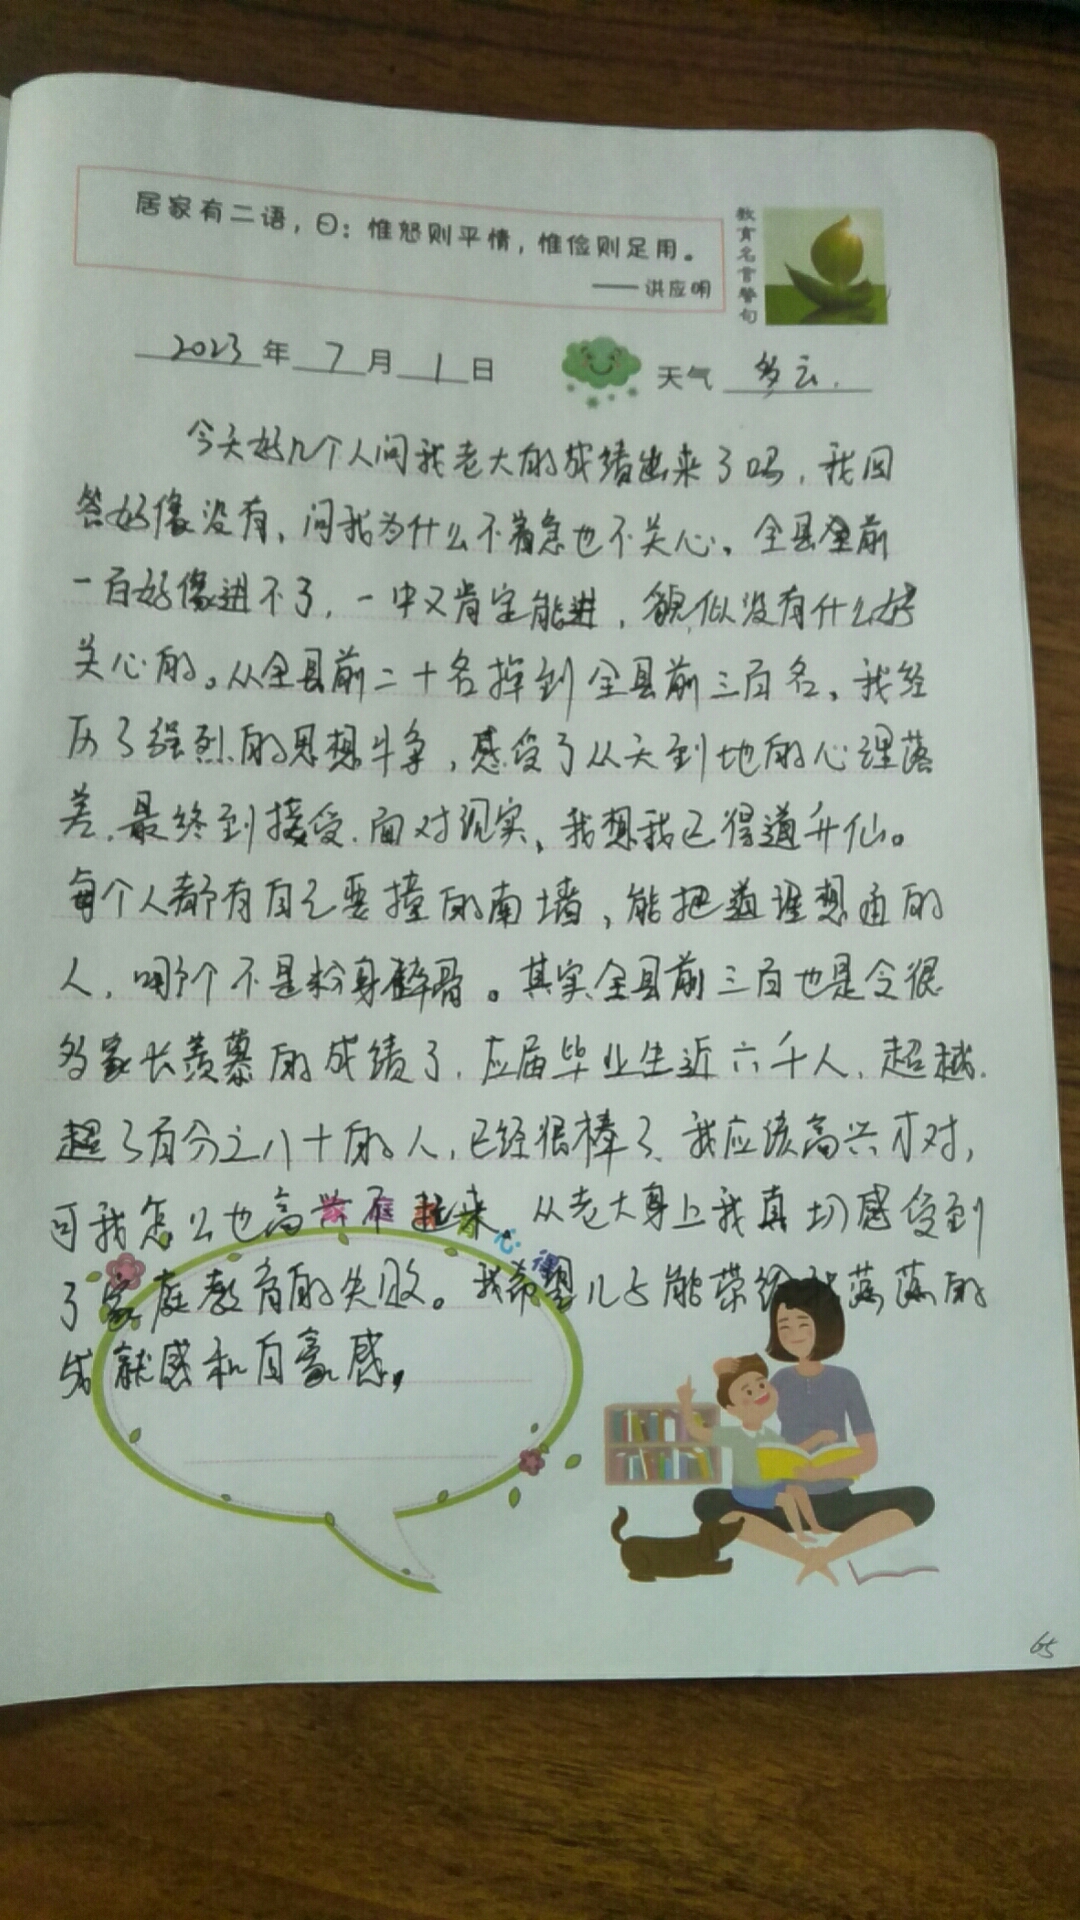 居家有二语，曰：惟恕则平情，惟俭则足用。
——洪应明
教育名言警句
2023年7月1日
天气 多云.
今天好几个人问我老大的成绩出来了吗，我回
答好像没有，问我为什么不着急也不关心。全县全前
一百好像进不了，一中又肯定能进，貌似没有什么好
关心的。从全县前二十名掉到全县前三百名，我经
历了强烈的思想斗争，感受了从天到地的心理落
差，最终到接受，面对现实，我想我已得道升仙。
每个人都有自己要撞的南墙，能把道理想通的
人，哪个不是粉身碎骨。其实全县前三百也是令很
多家长羡慕的成绩了，应届毕业生近六千人，超越
超了百分之八十的人，已经很棒了，我应该高兴才对，
可我怎么也高兴不起来，从老大身上我真切感受到
了家庭教育的失败。我希望儿子能带给我落落的
成就感和自豪感。
家庭 心
65